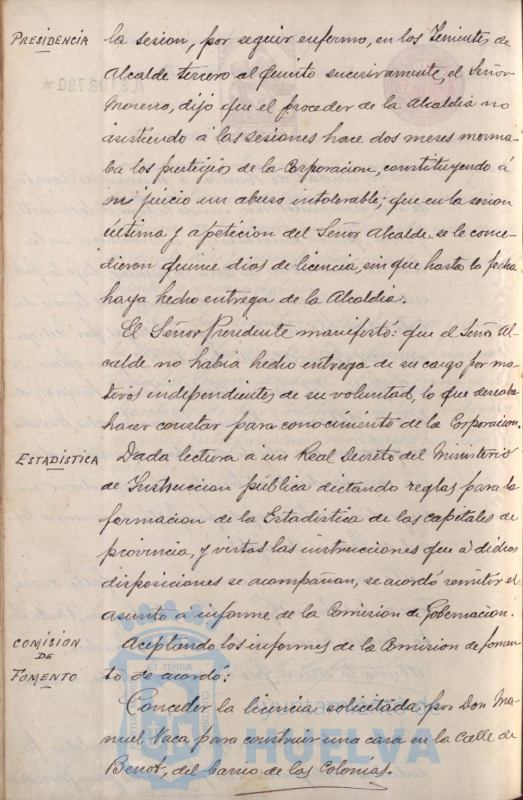 PRESIDENCIA
la sesion, por seguir enfermo, en los Tenientes de
Alcalde tercero al quinto sucesivamente, el Señor
Moreno, dijo que el proceder de la Alcaldia no
asistiendo á las sesiones hace dos meses merma-
ba los prestigios de la Corporacion, constituyendo á
mi juicio un abuso intolerable; que en la sesion
última y a peticion del Señor Alcalde se le conce-
dieron quince dias de licencia, sin que hasta la fecha
haya hecho entrega de la Alcaldia.
El Señor Presidente manifestó: que el Señor Al-
calde no habia hecho entrega de su cargo por mo-
tivos independientes de su voluntad, lo que deseaba
hacer constar para conocimiento de la Corporacion.
ESTADISTICA
Dada lectura á un Real Decreto del Ministerio
de Instruccion pública dictando reglas para la
formacion de la Estadistica de las capitales de
provincia, y vistas las instrucciones que á dichas
disposiciones se acompañan, se acordó remitir el
asunto á informe de la Comision de Gobernacion.
COMISION
DE
FOMENTO
Aceptando los informes de la Comision de fomen-
to se acordó:
Conceder la licencia solicitada por Don Ma-
nuel Vaca para construir una casa en la calle de
Benot, del barrio de las Colonias.
ET TERRÆ
HUELVA